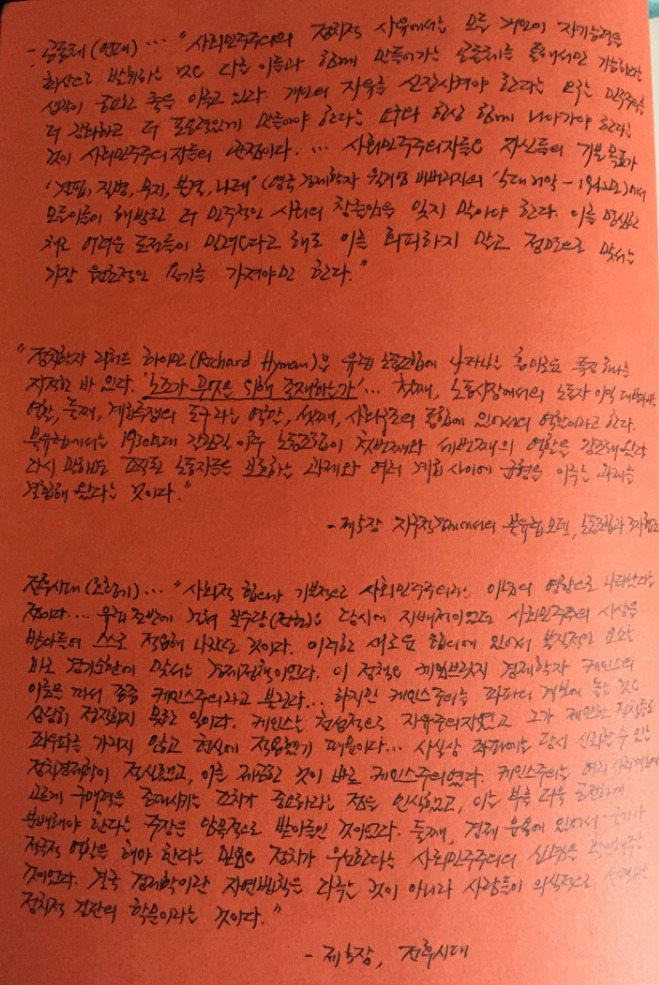 - 공동체(연대) … "사회민주주의의 정치적 사유에서는 모든 개인이 자기능력을
최상으로 발휘하는 것은 다른 이들과 함께 만들어가는 공동체를 통해서만 가능하다는
생각이 중요한 축을 이루고 있다. 개인의 자유를 신장시켜야 한다는 요구는 민주주의를
더 강화하고 더 포용력있게 만들어야 한다는 요구와 항상 함께 나아가야 한다는
것이 사회민주주의자들의 관점이다. … 사회민주주의자들은 자신들의 기본 목표가
'결핍, 질병, 무지, 불결, 나태' (영국 경제학자 윌리엄 베버리지의 '5대 해악 - 1942년)에서
모든이들이 해방된 더 민주적인 사회의 창출임을 잊지 말아야 한다. 이를 명심한
채로 어려운 도전들이 밀려온다고 해도 이를 회피하지 말고 정면으로 맞서는
가장 원초적인 용기를 가져야만 한다."
"정치학자 리처드 하이만(Richard Hyman)은 유럽 노동조합에 나타나는 흥미로운 특징 하나를
지적한 바 있다. '노조가 무엇을 위해 존재하는가' … 첫째, 노동시장에서의 노동자 이익 대변이라는
역할, 둘째, 계급투쟁의 도구라는 역할, 셋째, 사회구조의 통합에 있어서의 역할이라고 한다.
북유럽에서는 1930년대 이후 노동조합이 첫번째와 세번째의 역할을 강조해 왔다
다시 말하면 조직된 노동자들을 보호하는 과제와 여러 계급 사이에 균형을 이루는 과제를
결합해 왔다는 것이다."
- 제5장 지구적 경제에서의 북유럽 모델, 노동조합과
전후시대 (초창기) … "사회적 합의가 기본적으로 사회민주주의라는 이념의 영향으로 나타났다는
점이다. … 유럽 전반에 걸쳐 보수당(정권)은 당시에 지배적이었던 사회민주주의 사상을
받아들여 스스로 적응해 나갔던 것이다. 이러한 새로운 합의에 있어서 본질적인 요소는
바로 경기순환에 맞서는 경제정책이었다. 이 정책은 케임브릿지 경제학자 케인스의
이름을 따서 종종 케인스주의라고 불린다… 하지만 케인스주의를 좌파의 계보에 놓는 것은
상당히 정직하지 못한 일이다. 케인스는 천성적으로 자유주의자였고 그가 제안한 정책들은
좌우파를 가리지 않고 현실에 적용했기 때문이다… 사실상 좌파에는 당시 신뢰할 수 있는
정치경제학이 전무했고, 이를 제공한 것이 바로 케인스주의였다. 케인스주의는 여러 사회계층에
고르게 구매력을 증대시키는 조치가 중요하다는 점을 인식했고, 이는 부를 더욱 공정하게
분배해야 한다는 주장을 암묵적으로 받아들인 것이었다. 둘째, 경제 운용에 있어서 국가가
적극적 역할을 해야 한다는 믿음은 정치가 우선한다는 사회민주주의의 신념을
것이었다. 결국 경제학이란 자연법칙을 다루는 것이 아니라 사람들이 의식적으로 선택하는
정치적 결단의 학문이라는 것이다."
- 제5장, 전후시대